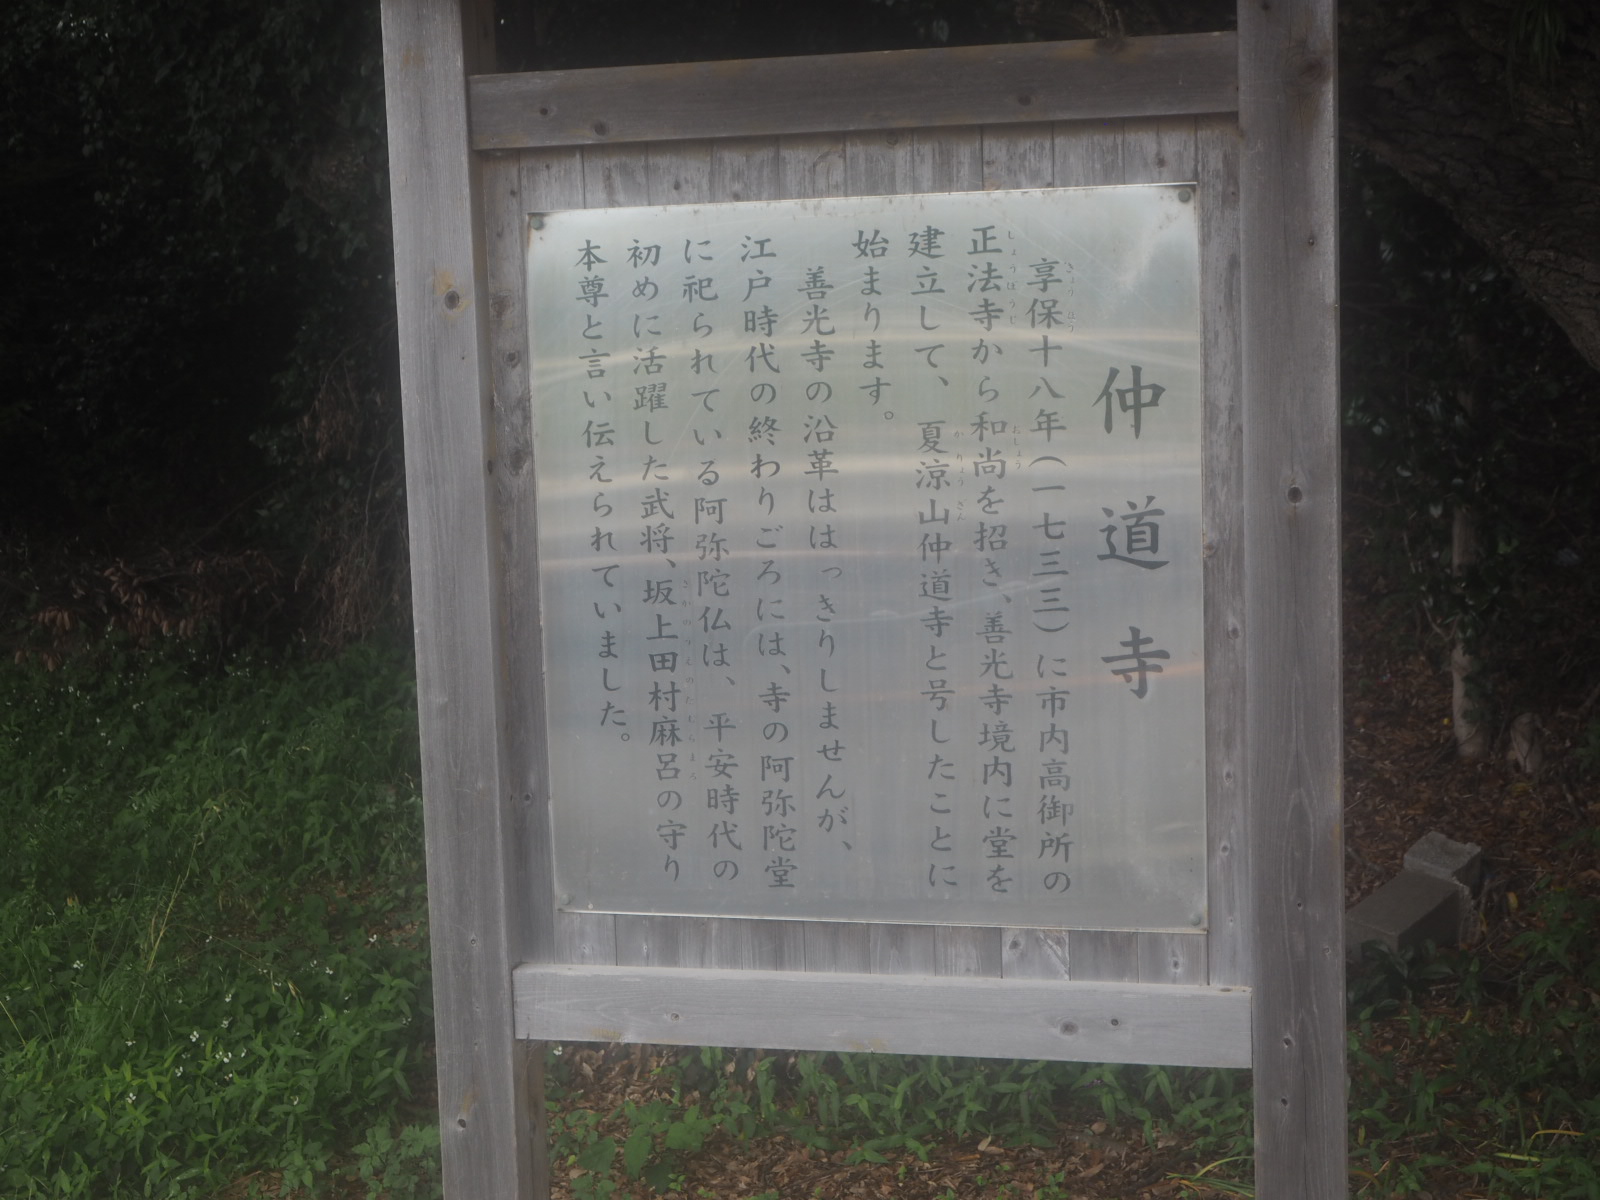 仲道寺
享保十八年（一七三三）に市内高御所の
正法寺から和尚を招き、善光寺境内に堂を
建立して、夏涼山仲道寺と号したことに
始まります。
善光寺の沿革ははっきりしませんが、
江戸時代の終わりごろには、寺の阿弥陀堂
に祀られている阿弥陀仏は、平安時代の
初めに活躍した武将、坂上田村麻呂の守り
本尊と言い伝えられていました。